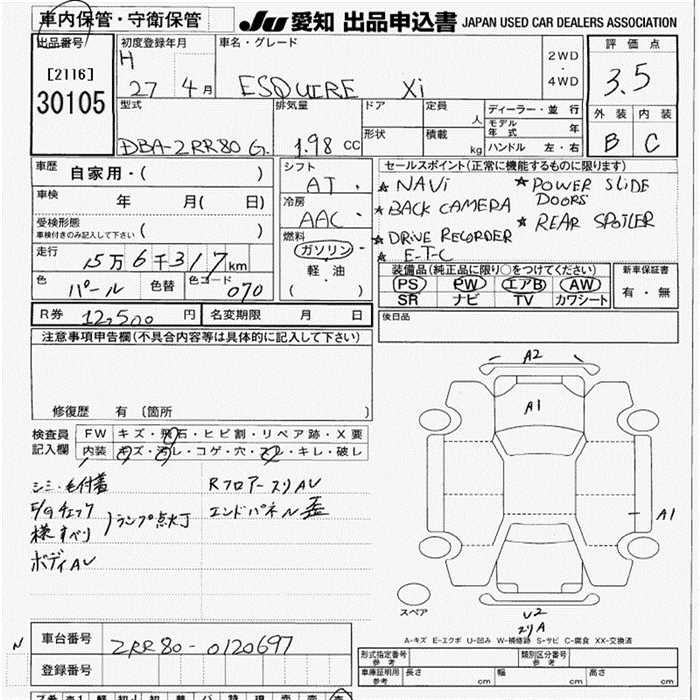 車内保管・守衛保管
JU 愛知 出品申込書 JAPAN USED CAR DEALERS ASSOCIATION
出品番号
[2116]
30105
初度登録年月
H
27 4月
車名・グレード
ESQUIRE Xi
2WD
・
4WD
評価点
3.5
外装 内装
B C
型式
DBA-ZRR80G.
排気量
1.98 cc
ドア
形状
定員
人
積載
kg
ディーラー・並行
モデル年式 年
ハンドル 左・右
車歴
自家用・( )
車検
年 月( 日)
受検形態
車検付きのみ記入して下さい ( )
走行
15万6千317km
色
パール
色替
色コード
070
シフト
AT
冷房
AAC
燃料
ガソリン・
軽油
( )
セールスポイント(正常に機能するものに限ります)
★ NAVi
★ BACK CAMERA
★ DRIVE RECORDER
★ E-T-C
★ POWER SLIDE DOORS
★ REAR SPOILER
装備品(純正品に限り○をつけてください)
PS PW エアB AW
SR ナビ TV カワシート
新車保証書
有・無
R券 12,500 円
名変期限 月 日
後日品
注意事項申告欄(不具合内容等は具体的に記入して下さい)
修復歴 有〔箇所 〕
検査員記入欄
FW キズ・飛石・ヒビ割・リペア跡・X要
内装 キズ・汚レ・コゲ・穴・スレ・キレ・破レ
シミ・毛付着
E/gチェック
横すべり
)ランプ点灯
ボディAU
RフロアースリAU
エンドパネル歪
A2
A1
A1
スペア
U2
スリA
A-キズ E-エクボ U-凹み W-補修跡 S-サビ C-腐食 XX-交換済
N
車台番号
ZRR80-0120697
登録番号
形式指定番号
参考
類別区分番号
参考
車庫証明用
参考
長さ cm
幅 cm
高さ cm